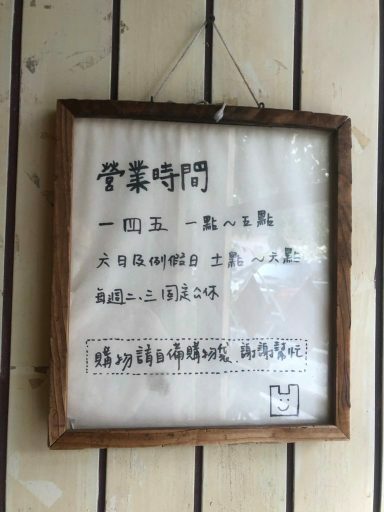 營業時間
一四五 一點～五點
六日及例假日 十一點～六點
每週二、三固定公休
購物請自備購物袋 謝謝幫忙